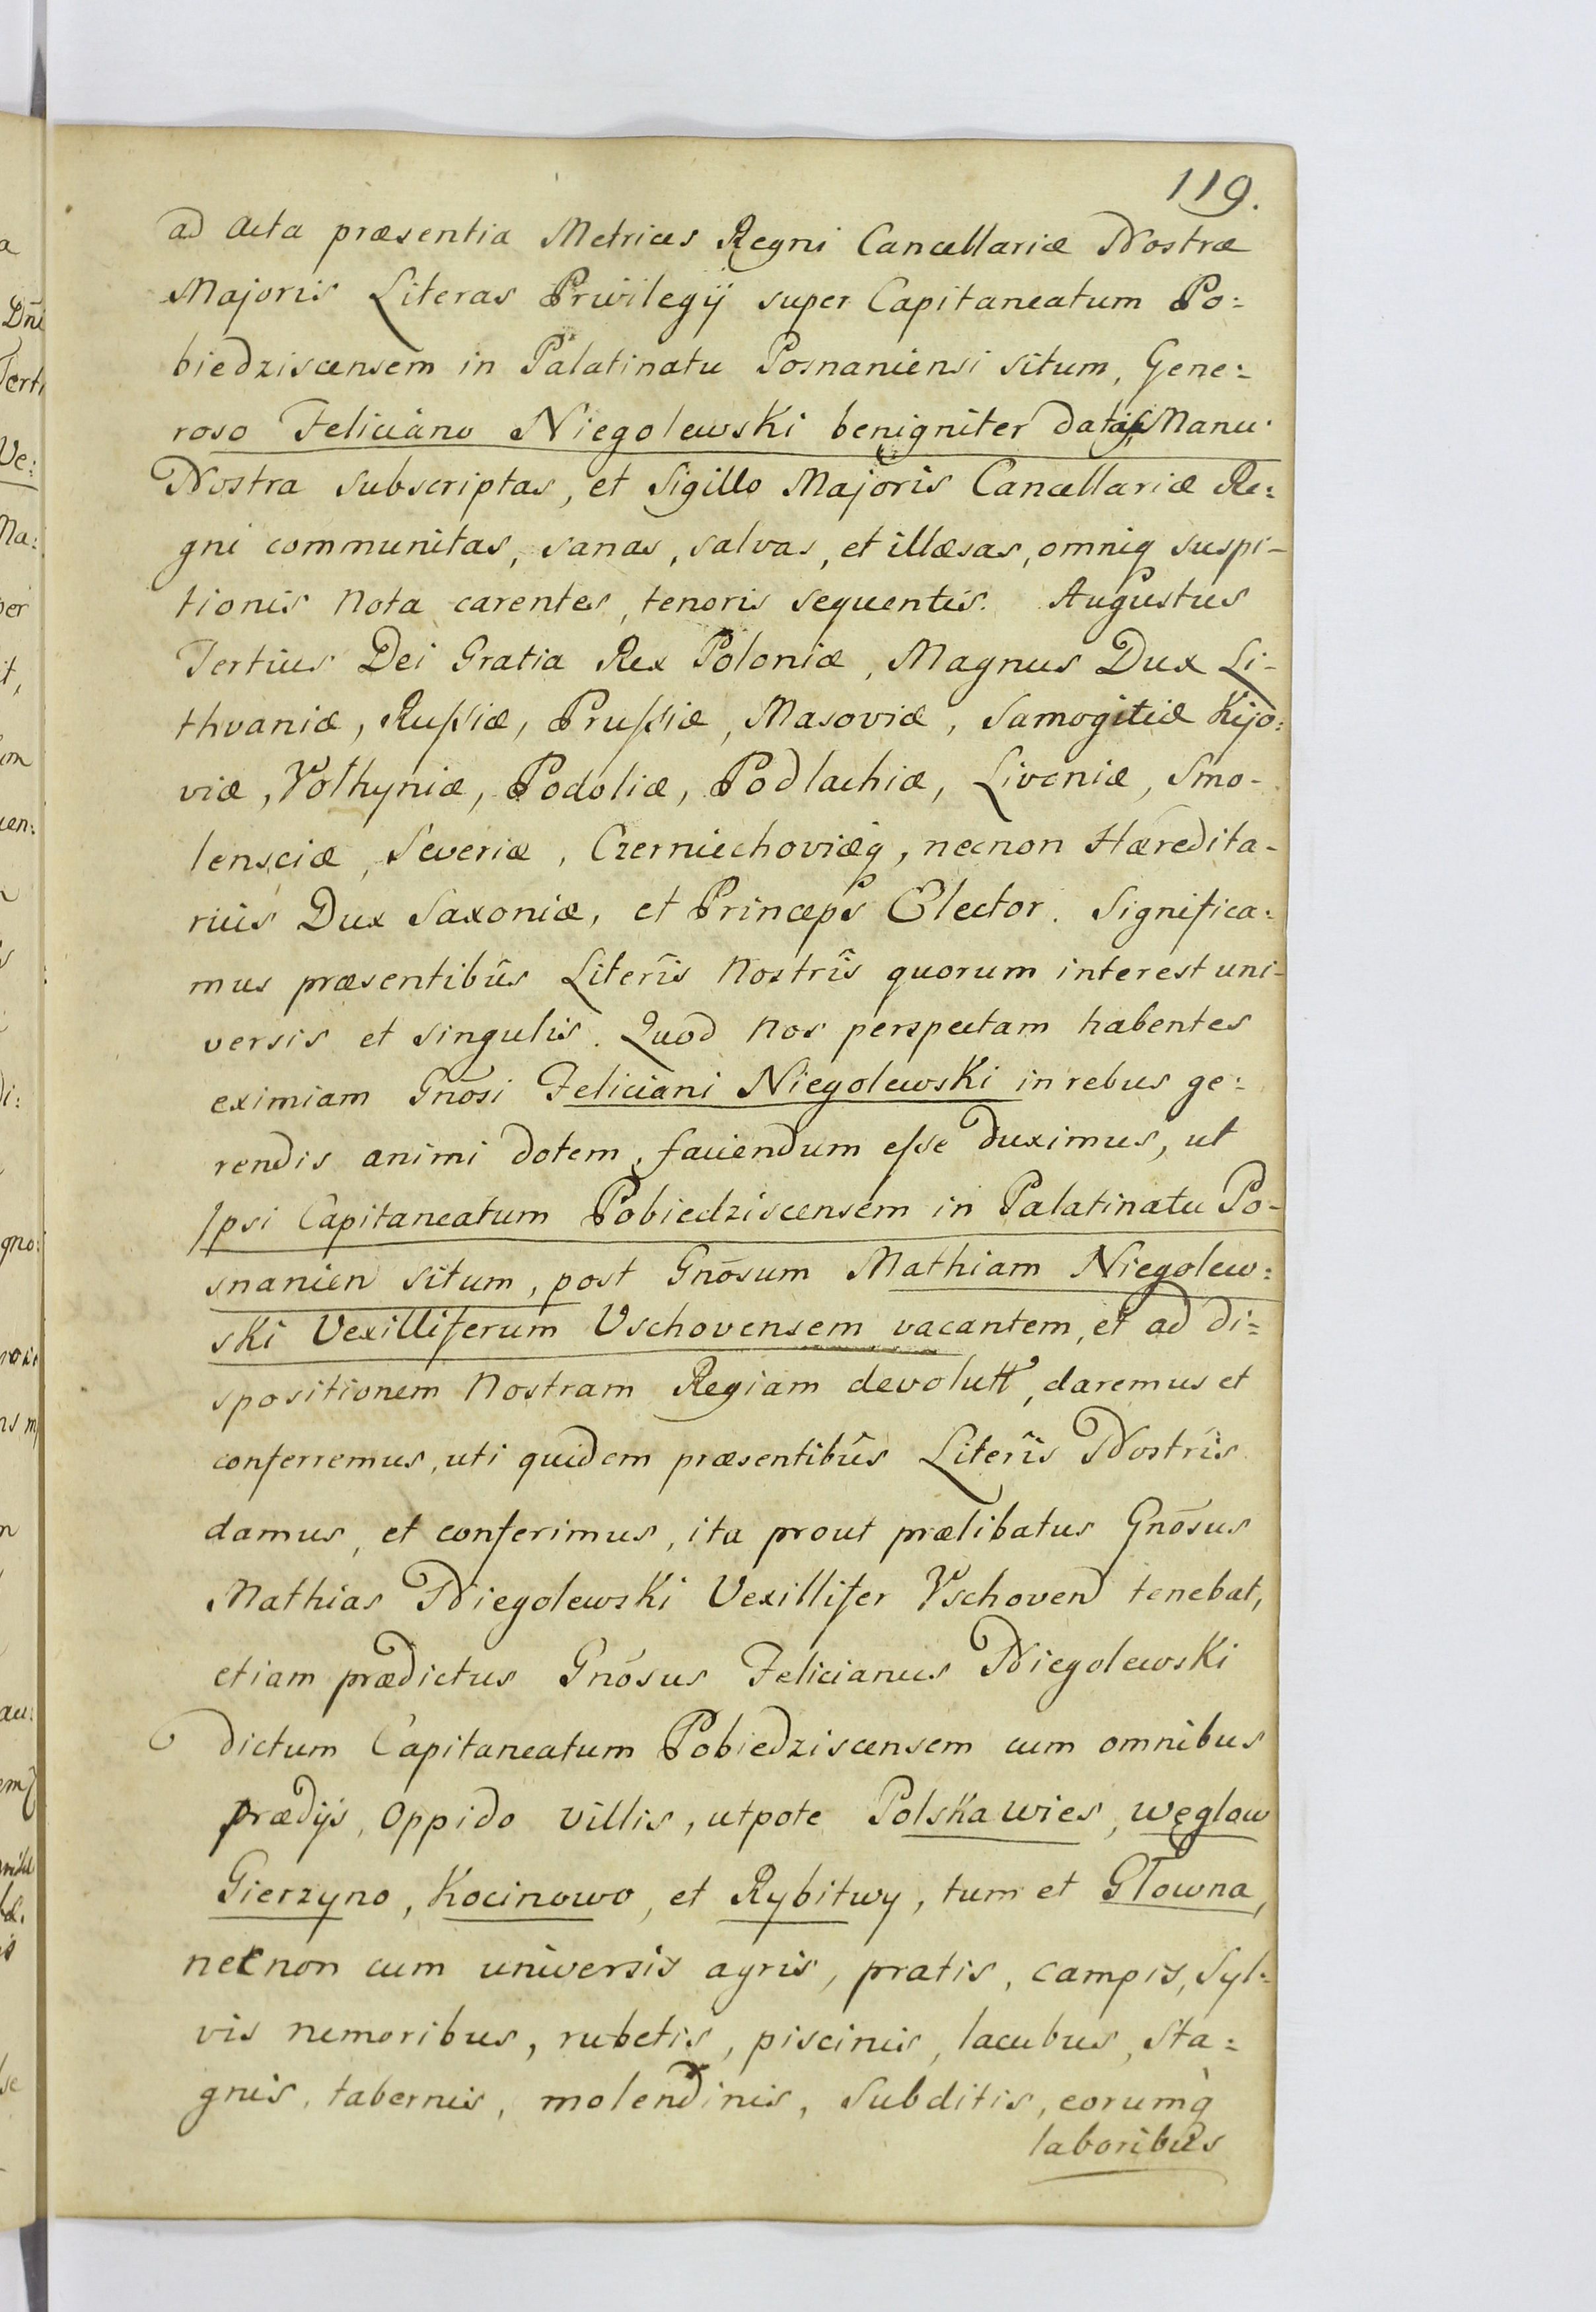 119.
ad Acta præsentia Metrices Regni Cancellariæ Nostræ
Majoris Literas Privilegij super Capitaneatum Po:
biedziscensem in Palatinatu Posnaniensi situm, Gene:
roso Feliciano Niegolewski benigniter datas, Manu
Nostra subscriptas, et Sigillo Majoris Cancellariæ Re:
gni communitas, sanas, salvas, et illæsas, omniq suspi-
tionis nota carentes, tenoris sequentis. Augustus
Tertius Dei Gratia Rex Poloniæ, Magnus Dux Li-
thvaniæ, Russiæ, Prussiæ, Masoviæ, Samogitiæ Kijo:
viæ, Volhyniæ, Podoliæ, Podlachiæ, Livoniæ, Smo-
lensciæ, Severiæ, Czerniechoviæq, necnon Hæredita-
rius Dux Saxoniæ, et Princeps Elector. Significa:
mus præsentibûs Literîs Nostrîs quorum interest uni-
versis et singulis. Quod Nos perspectam habentes
eximiam Gnōsi Feliciani Niegolewski in rebus ge:
rendis animi dotem, faciendum esse duximus, ut
Ipsi Capitaneatum Pobiedziscensem in Palatinatu Po-
snanien situm, post Gnōsum Mathiam Niegolew:
ski Vexilliferum Vschovensem vacantem, et ad di:
spositionem Nostram Regiam devolutt, daremus et
conferremus, uti quidem præsentibûs Literîs Nostrîs
damus, et conferimus, ita prout prælibatus Gnōsus
Mathias Niegolewski Vexillifer Vschoven tenebat,
etiam prædictus Gnōsus Felicianus Niegolewski
dictum Capitaneatum Pobiedziscensem cum omnibus
prædijs, Oppido villis, utpote Polska wies, węglow
Gierzyno, Kocinowo, et Rybitwy, tum et Głowna,
necnon cum universis agris, pratis, campis, Syl:
vis nemoribus, rubetis, piscinis, lacubus, sta:
gnis, tabernis, molendinis, Subditis, eorumq̀
laboribus